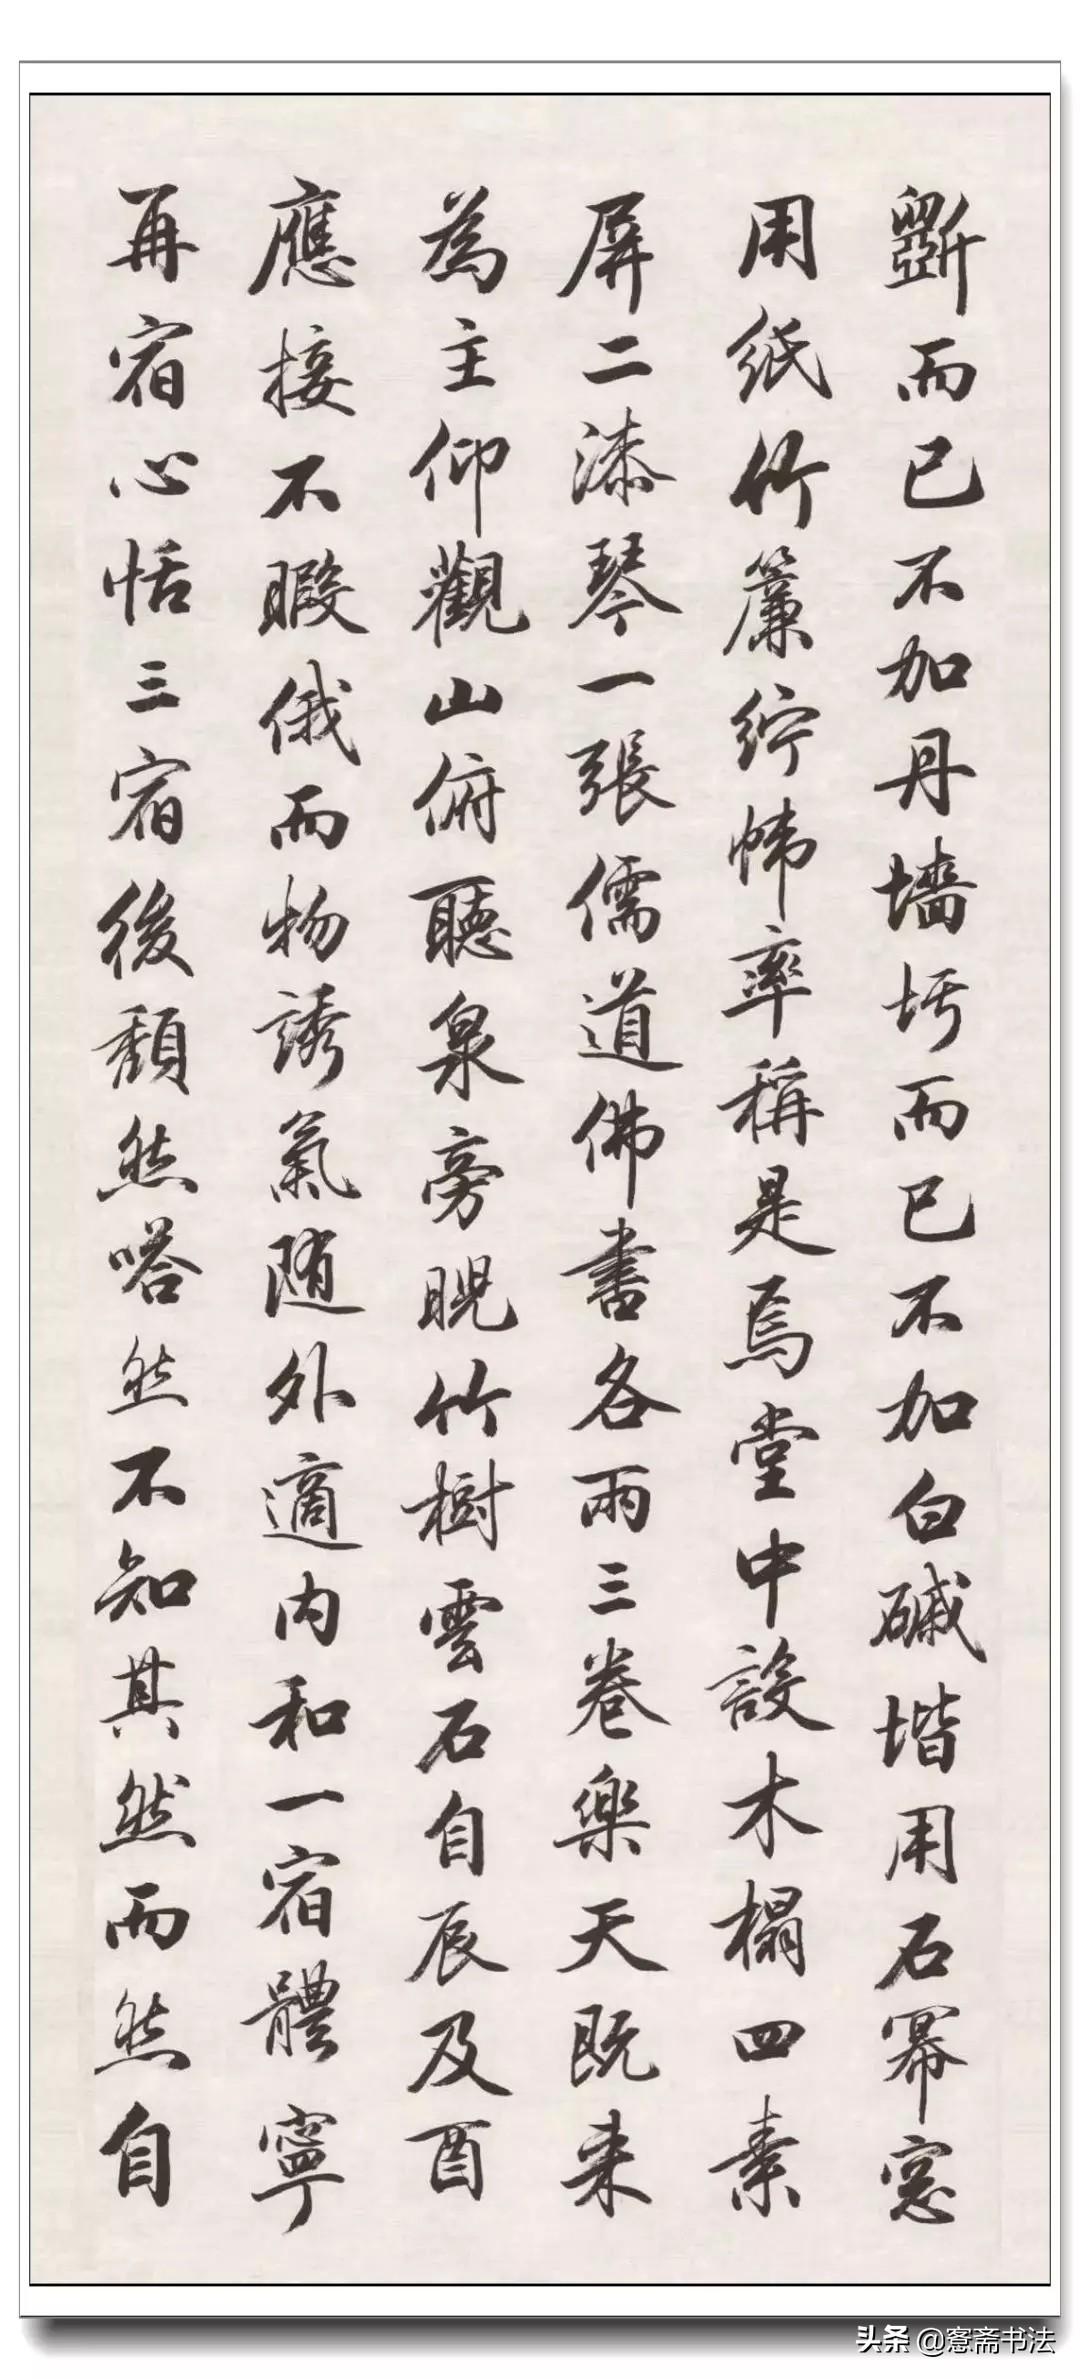 斲而已不加丹墻圬而已不加白磩堦用石幂窓
用紙竹簾紵幃率稱是焉堂中設木榻四素
屏二漆琴一張儒道佛書各兩三卷樂天既来
為主仰觀山俯聽泉旁睨竹樹雲石自辰及酉
應接不暇俄而物誘氣随外適内和一宿體寧
再宿心恬三宿後頽然嗒然不知其然而然自
头条 @窓斋书法